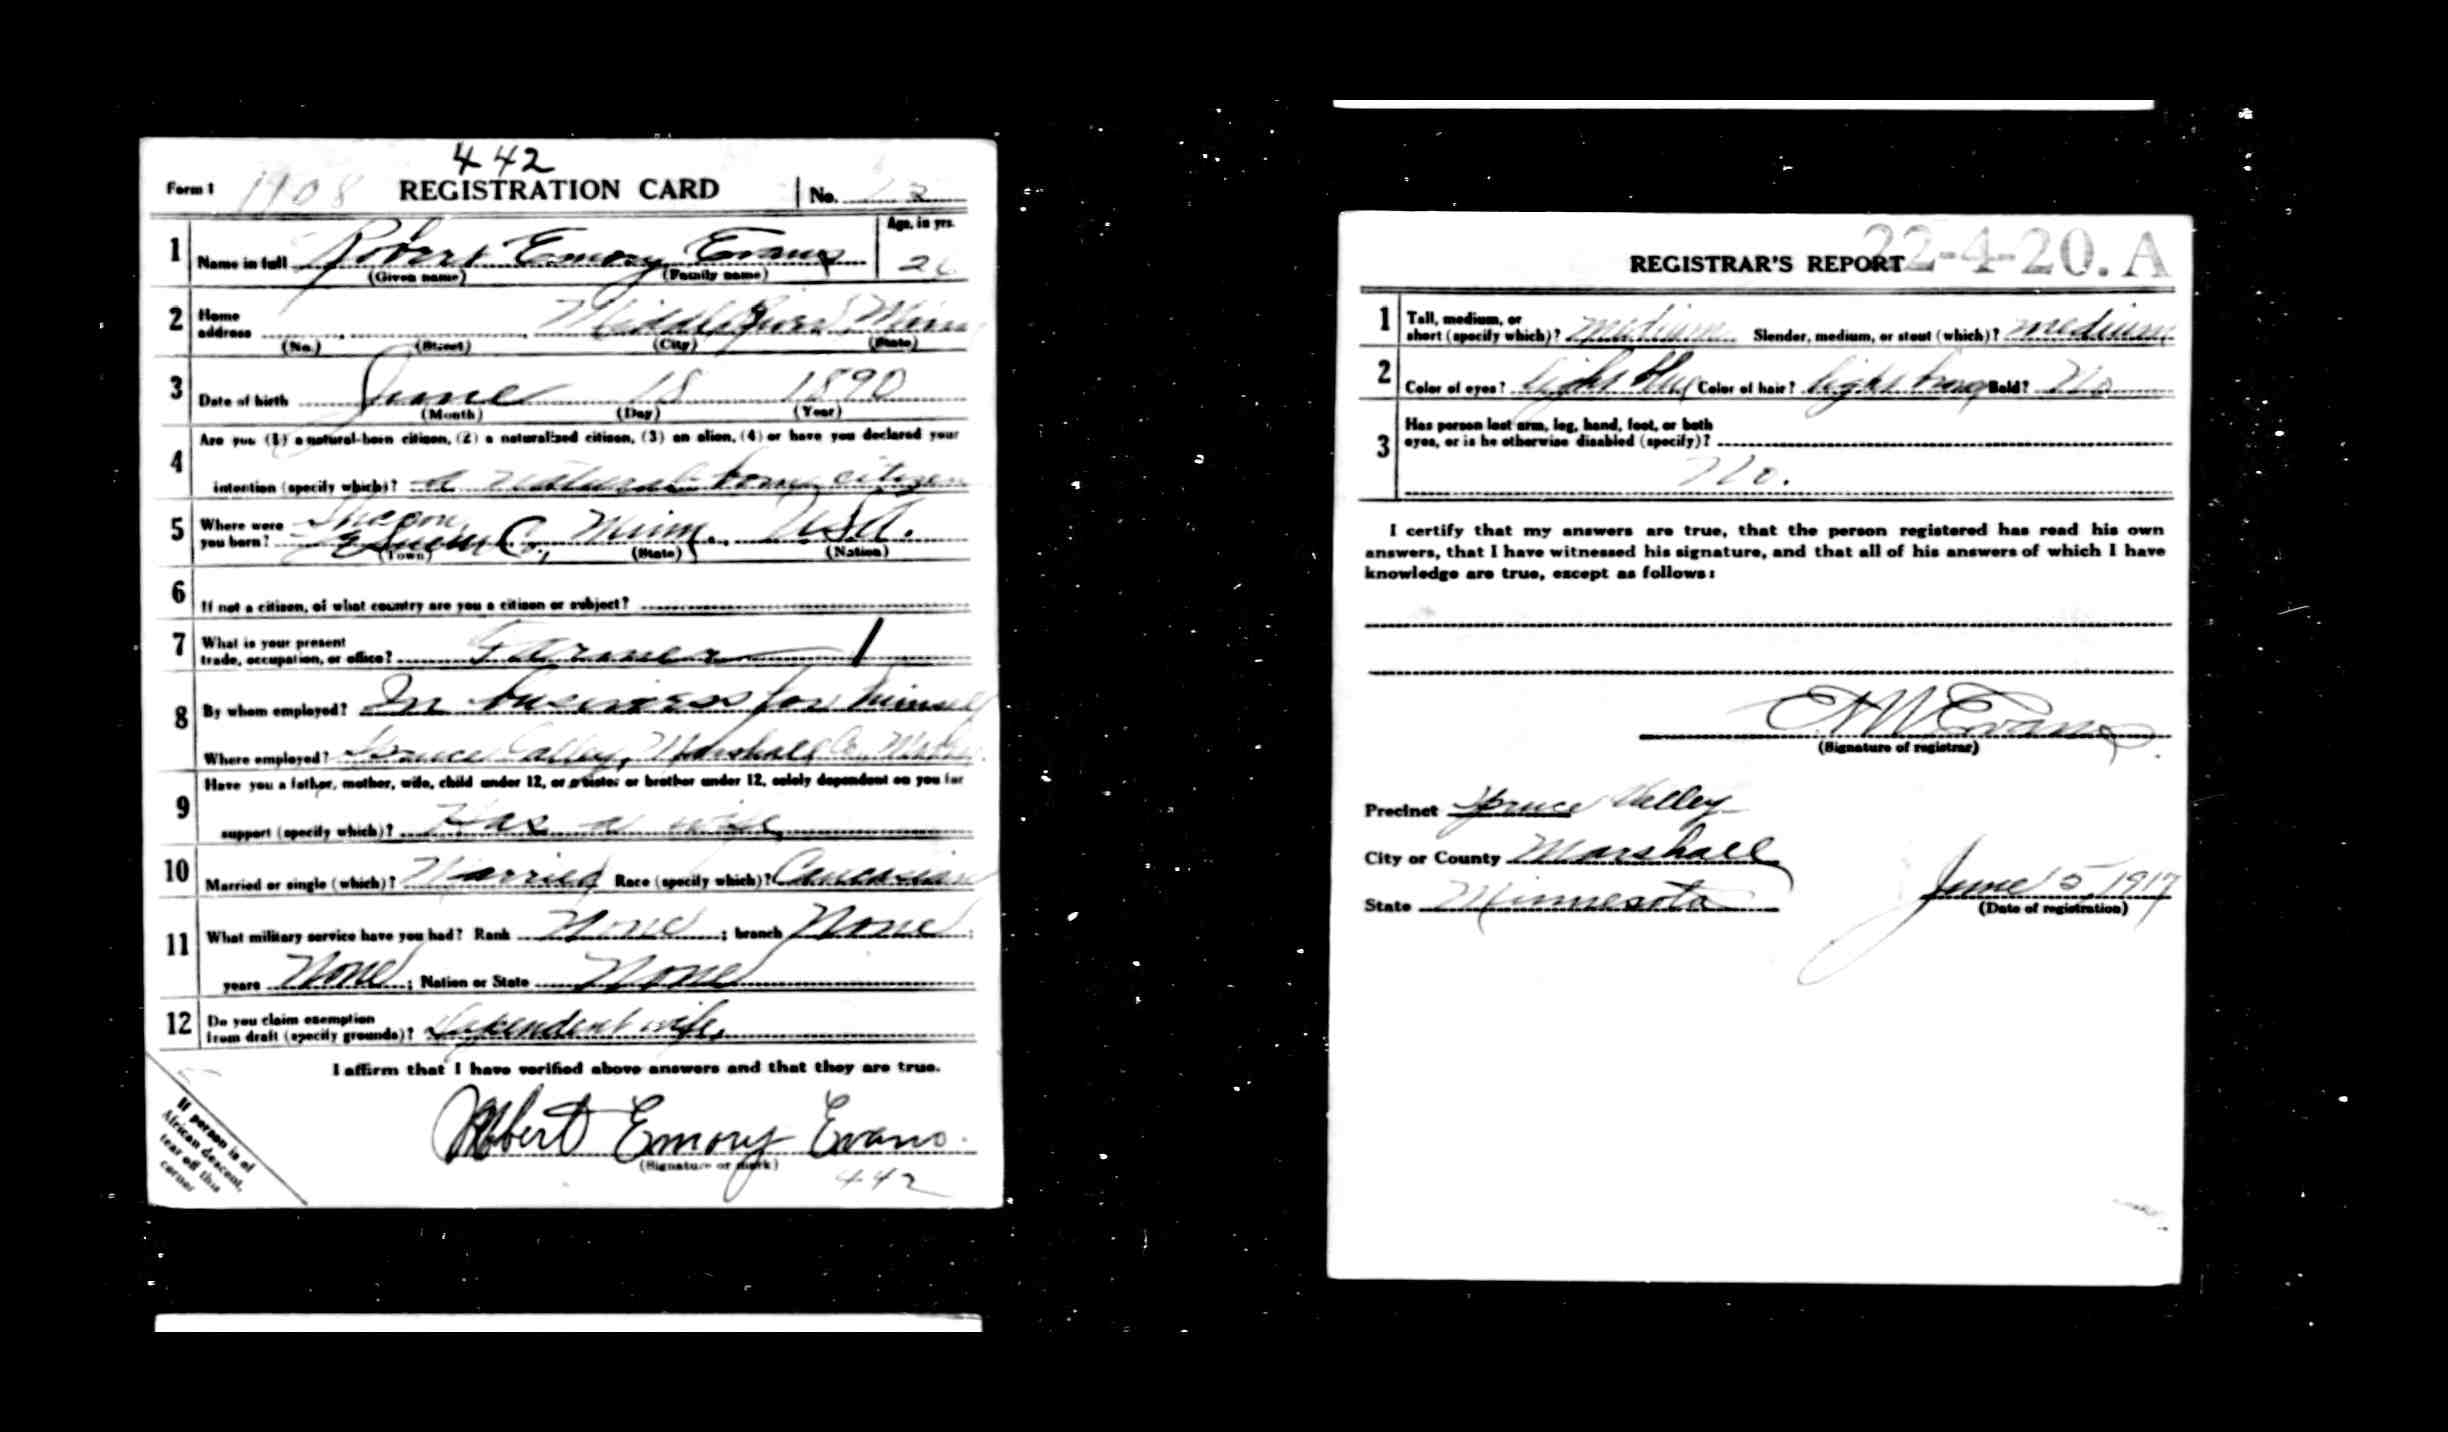 442
Form 1 1908 REGISTRATION CARD No.
1 Name in full Robert Emory Evans Age, in yrs. 26
(Given name) (Family name)
2 Home address Middle River Minn
(No.) (Street) (City) (State)
3 Date of birth June 18 1890
(Month) (Day) (Year)
4 Are you (1) a natural-born citizen, (2) a naturalized citizen, (3) an alien, (4) or have you declared your
intention (specify which)? a natural-born citizen
5 Where were you born? Sharon, Le Sueur Co., Minn., USA.
(Town) (State) (Nation)
6 If not a citizen, of what country are you a citizen or subject?
7 What is your present trade, occupation, or office? Farmer
8 By whom employed? In business for himself
Where employed? Spruce Valley, Marshall Co.
9 Have you a father, mother, wife, child under 12, or a sister or brother under 12, solely dependent on you for
support (specify which)? Has a wife
10 Married or single (which)? Married Race (specify which)? Caucasian
11 What military service have you had? Rank None ; branch None ;
years None ; Nation or State None
12 Do you claim exemption from draft (specify grounds)? Dependent wife,
I affirm that I have verified above answers and that they are true.
Robert Emory Evans.
(Signature or mark)
442
If person is of
African descent,
tear off this
corner
22-4-20. A
REGISTRAR'S REPORT
1 Tall, medium, or short (specify which)? medium Slender, medium, or stout (which)? medium
2 Color of eyes? light blue Color of hair? light brown Bald? No
3 Has person lost arm, leg, hand, foot, or both
eyes, or is he otherwise disabled (specify)?
No.
I certify that my answers are true, that the person registered has read his own
answers, that I have witnessed his signature, and that all of his answers of which I have
knowledge are true, except as follows:
Evans
(Signature of registrar)
Precinct Spruce Valley
City or County Marshall
State Minnesota
June 5 1917
(Date of registration)